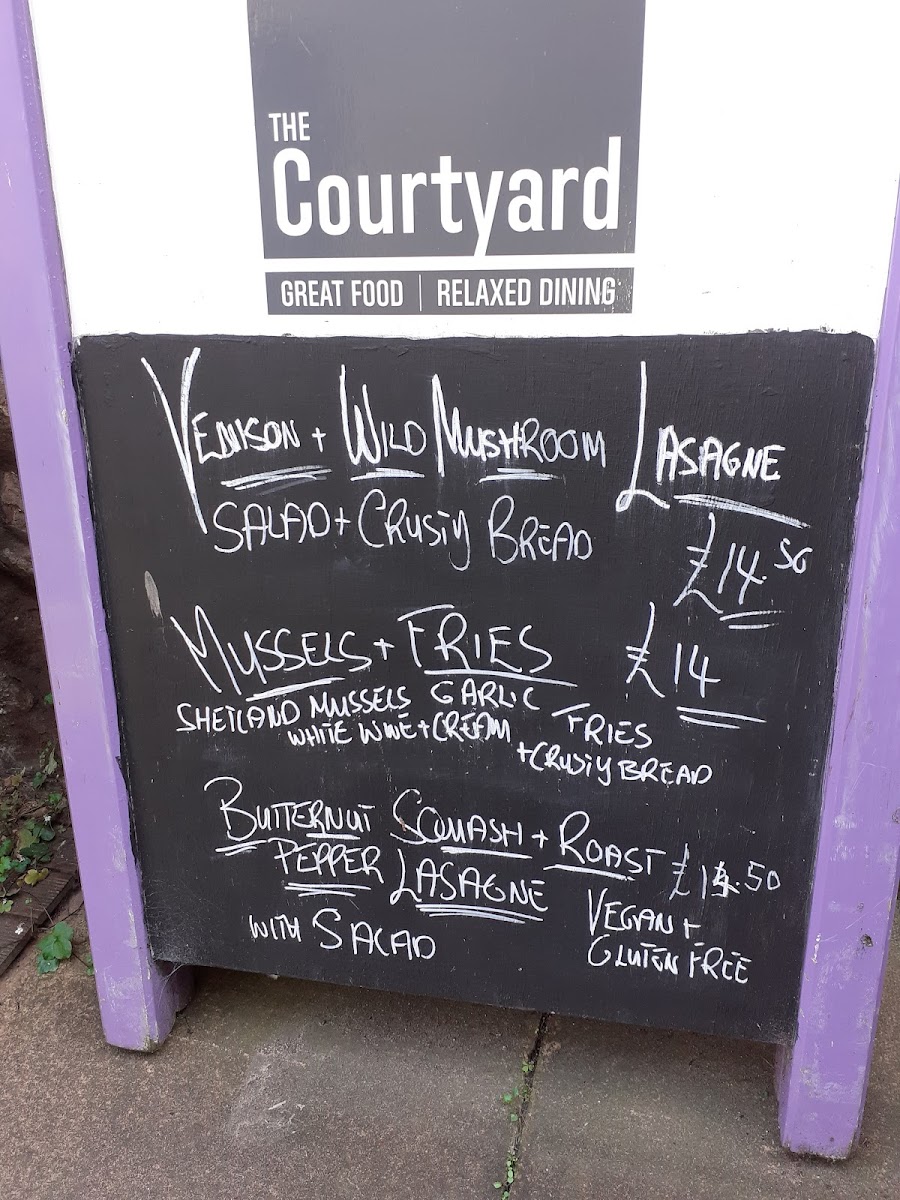 THE
Courtyard
GREAT FOOD | RELAXED DINING
VENISON + WILD MUSHROOM LASAGNE
SALAD + CRUSTY BREAD
£14.50
MUSSELS + FRIES £14
SHETLAND MUSSELS GARLIC
WHITE WINE + CREAM FRIES
+ CRUSTY BREAD
BUTTERNUT SQUASH + ROAST
PEPPER LASAGNE
WITH SALAD
VEGAN +
GLUTEN FREE